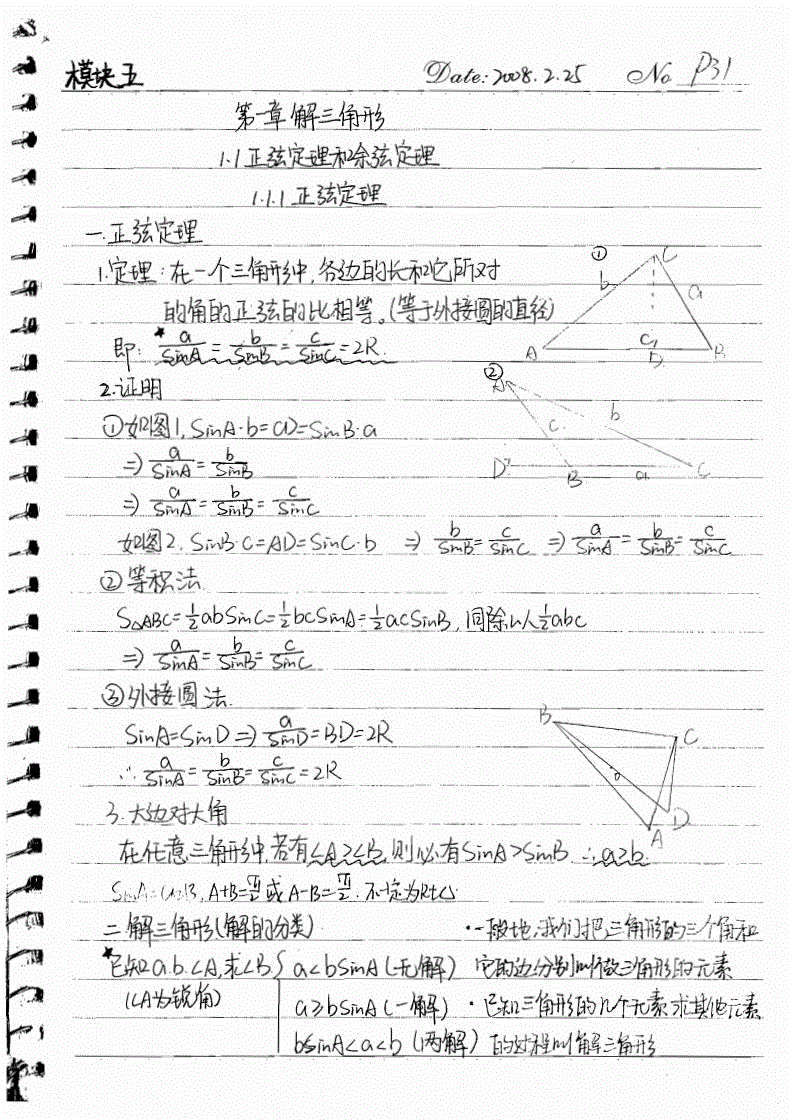 模块五 Date: 2008.2.25 No P31
第一章 解三角形
1.1 正弦定理和余弦定理
1.1.1 正弦定理
一.正弦定理
1.定理：在一个三角形中，各边的长和它所对
的角的正弦的比相等。(等于外接圆的直径)
即: ★ a/SinA = b/SinB = c/SinC = 2R.
① C b a A c D B
2.证明
② A c b D B a C
①如图1, SinA·b=CD=SinB·a
⇒ a/SinA = b/SinB
⇒ a/SinA = b/SinB = c/SinC
如图2. SinB·c=AD=SinC·b ⇒ b/SinB = c/SinC ⇒ a/SinA = b/SinB = c/SinC
②等积法
S△ABC=½abSinC=½bcSinA=½acSinB, 同除以½abc
⇒ a/SinA = b/SinB = c/SinC
③外接圆法
SinA=SinD ⇒ a/SinD = BD=2R
∴ a/SinA = b/SinB = c/SinC = 2R
B C O D A
3.大边对大角
在任意三角形中,若有∠A≥∠B,则必有SinA>SinB ∴a≥b.
A+B=π/2 或 A-B=π/2. 不一定为Rt△
二.解三角形(解的分类)
★已知a.b.∠A,求∠B { a<bSinA (无解)
(∠A为锐角) a≥bSinA (一解)
bSinA<a<b (两解)
·一般地,我们把三角形的三个角和
它的边分别叫做三角形的元素
·已知三角形的几个元素求其他元素
的过程叫解三角形